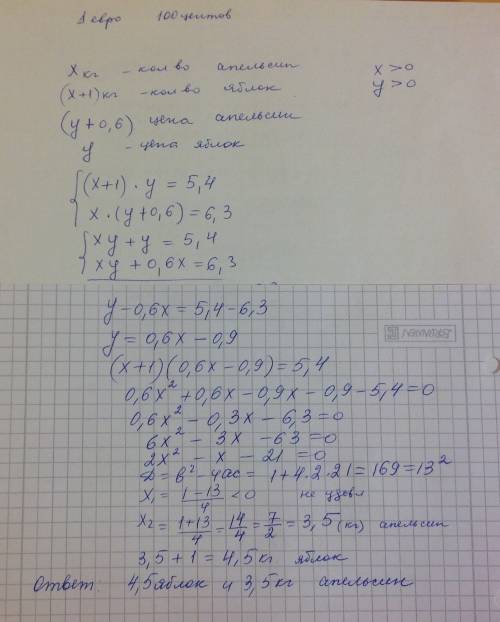 1 евро 100 центов
x кг - кол во апельсин x > 0
(x+1) кг - кол во яблок y > 0
(y+0,6) цена апельсин
y - цена яблок
{ (x+1) · y = 5,4
x · (y+0,6) = 6,3
{ xy + y = 5,4
xy + 0,6x = 6,3
y - 0,6x = 5,4 - 6,3
y = 0,6x - 0,9
(x+1)(0,6x - 0,9) = 5,4
0,6x² + 0,6x - 0,9x - 0,9 - 5,4 = 0
0,6x² - 0,3x - 6,3 = 0
6x² - 3x - 63 = 0
2x² - x - 21 = 0
D = b² - 4ac = 1 + 4·2·21 = 169 = 13²
x₁ = (1-13)/4 < 0 не удовл
x₂ = (1+13)/4 = 14/4 = 7/2 = 3,5 (кг) апельсин
3,5 + 1 = 4,5 кг яблок
Ответ: 4,5 яблок и 3,5 кг апельсин